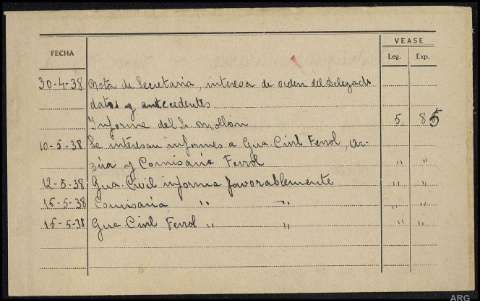 VEASE
FECHA Leg. Exp.
30-4-38 Nota de Secretaria, interesa de orden del Delegado
datos y antecedentes
Informe del Sr 5 85
10-5-38 Se interesan informes a Gua. Civil Ferrol, Ar-
zúa y Comisaria Ferrol " "
12-5-38 Gua. Civil informa favorablemente " "
15-5-38 Comisaria " " " "
15-5-38 Gua Civil Ferrol " " " "
ARG